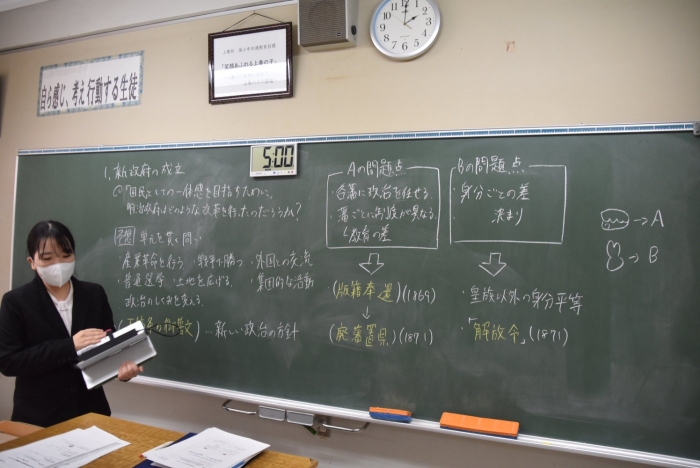 自ら感じ、考え行動する生徒
5:00
1. 新政府の成立
「国民としての一体感を目指すために、
明治政府はどのような改革を行ったのだろうか?
予想 単元を貫く問い
・産業革命を行う ・戦争で勝つ ・外国との交流
・普通選挙 ・土地を広げる ・集団的な活動
政治のしくみを変える
…新しい政治の方針
Aの問題点
・各藩に政治を任せる
・藩ごとに制度が異なる
教育の差
(版籍奉還)(1869)
(廃藩置県)(1871)
Bの問題点
・身分ごとの差
決まり
・皇族以外の身分平等
・「解放令」(1871)
→A
→B